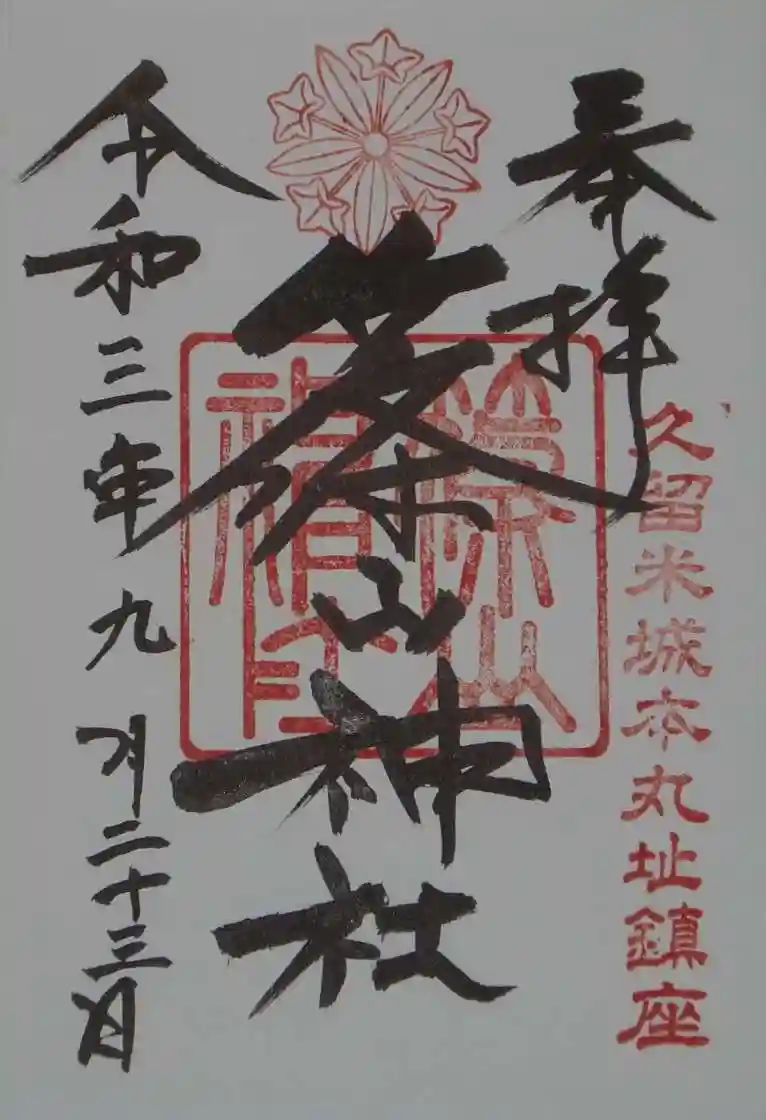 奉拝
久留米城本丸址鎮座
篠山神社
篠山
神印
令和三年九月二十三日